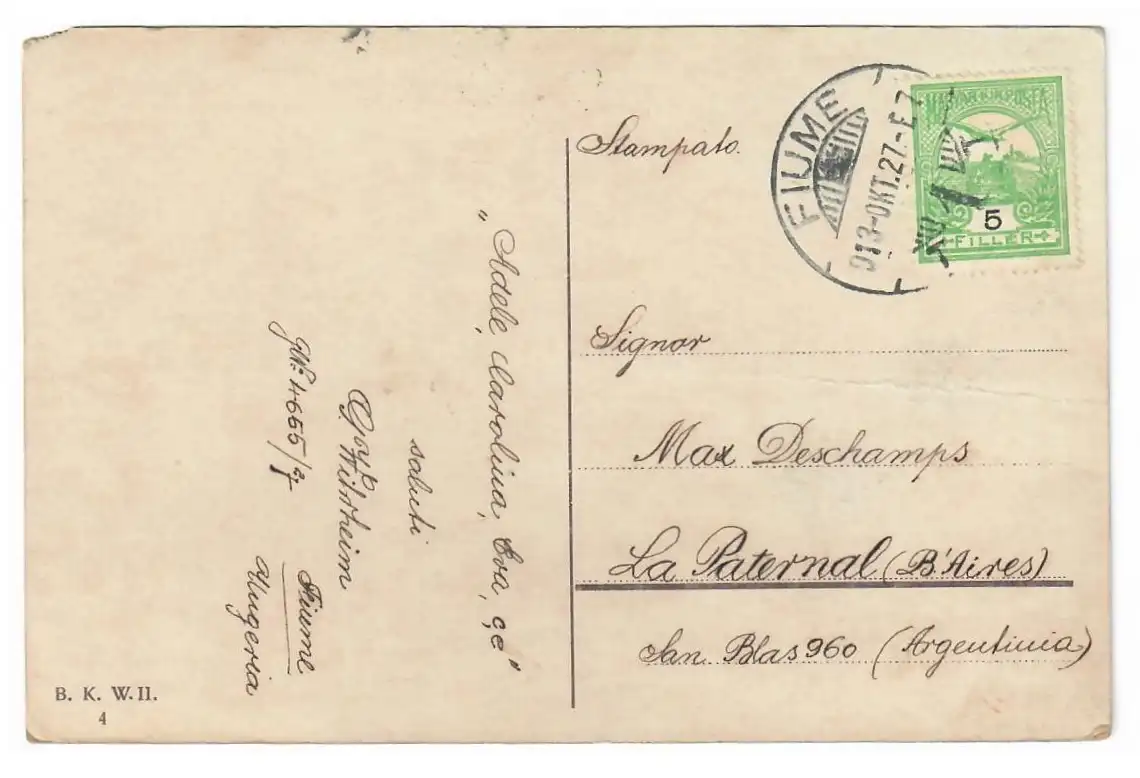 Stampato.
FIUME
913-OKT.27-E7
MAGYAR KIR. POSTA
5
FILLER
Signor
Max Deschamps
La Paternal (B'Aires)
San Blas 960 (Argentinia)
"Adele, Carolina, Eva, çe"
saluti
4665/
Fiume
Ungeria
B. K. W. II.
4